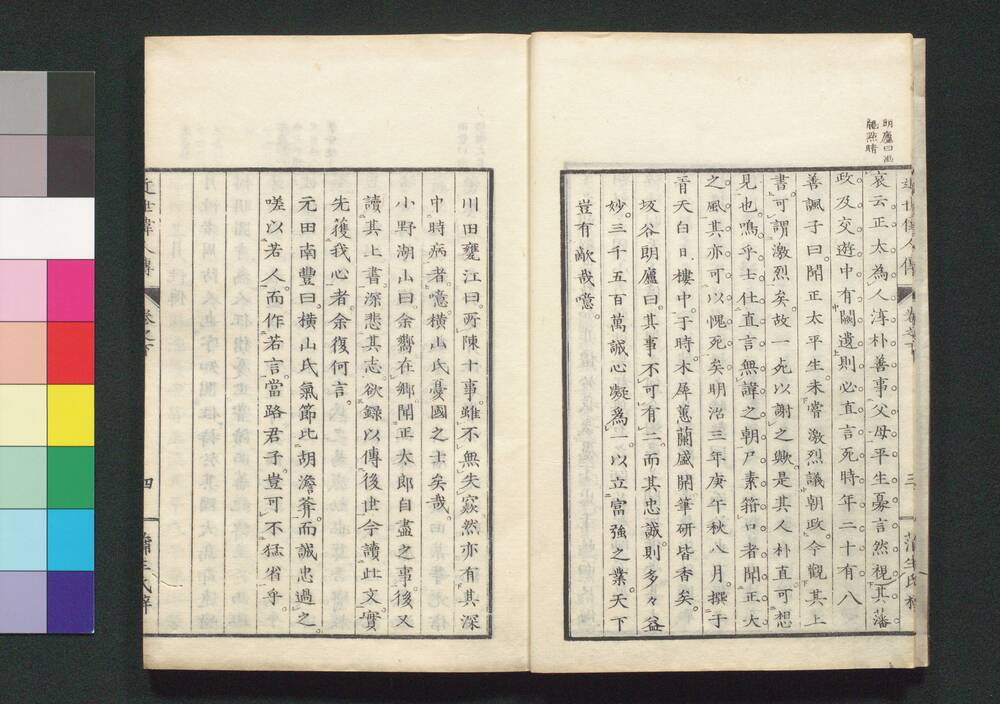 朗廬曰
哀云正太為人淳朴善事父母平生寡言然視其藩
政及交遊中有闕遺則必直言死時年二十有八
善諷子曰聞正太平生未嘗激烈議朝政今觀其上
書可謂激烈矣故一死以謝之歟是其人朴直可想
見也嗚乎士仕直言無諱之朝尸素箝口者聞正太
之風其亦可以愧死矣明治三年庚午秋八月撰于
青天白日樓中于時木犀蕙蘭盛開筆研皆香矣
坂谷朗廬曰其事不可有二而其忠誠則多々益
妙三千五百萬誠心凝為一以立富強之業天下
豈有敵哉噫
近世偉人傳
三
川田甕江曰所陳十事雖不無失窾然亦有其深
中時病者噫橫山氏憂國之士矣哉
小野湖山曰余嚮在鄉聞正太郎自盡之事後又
讀其上書深悲其志欲錄以傳後世今讀此文實
先獲我心者余復何言
元田南豐曰橫山氏氣節比胡澹菴而誠忠過之
嗟以若人而作若言當路君子豈可不猛省乎
近世偉人傳
四